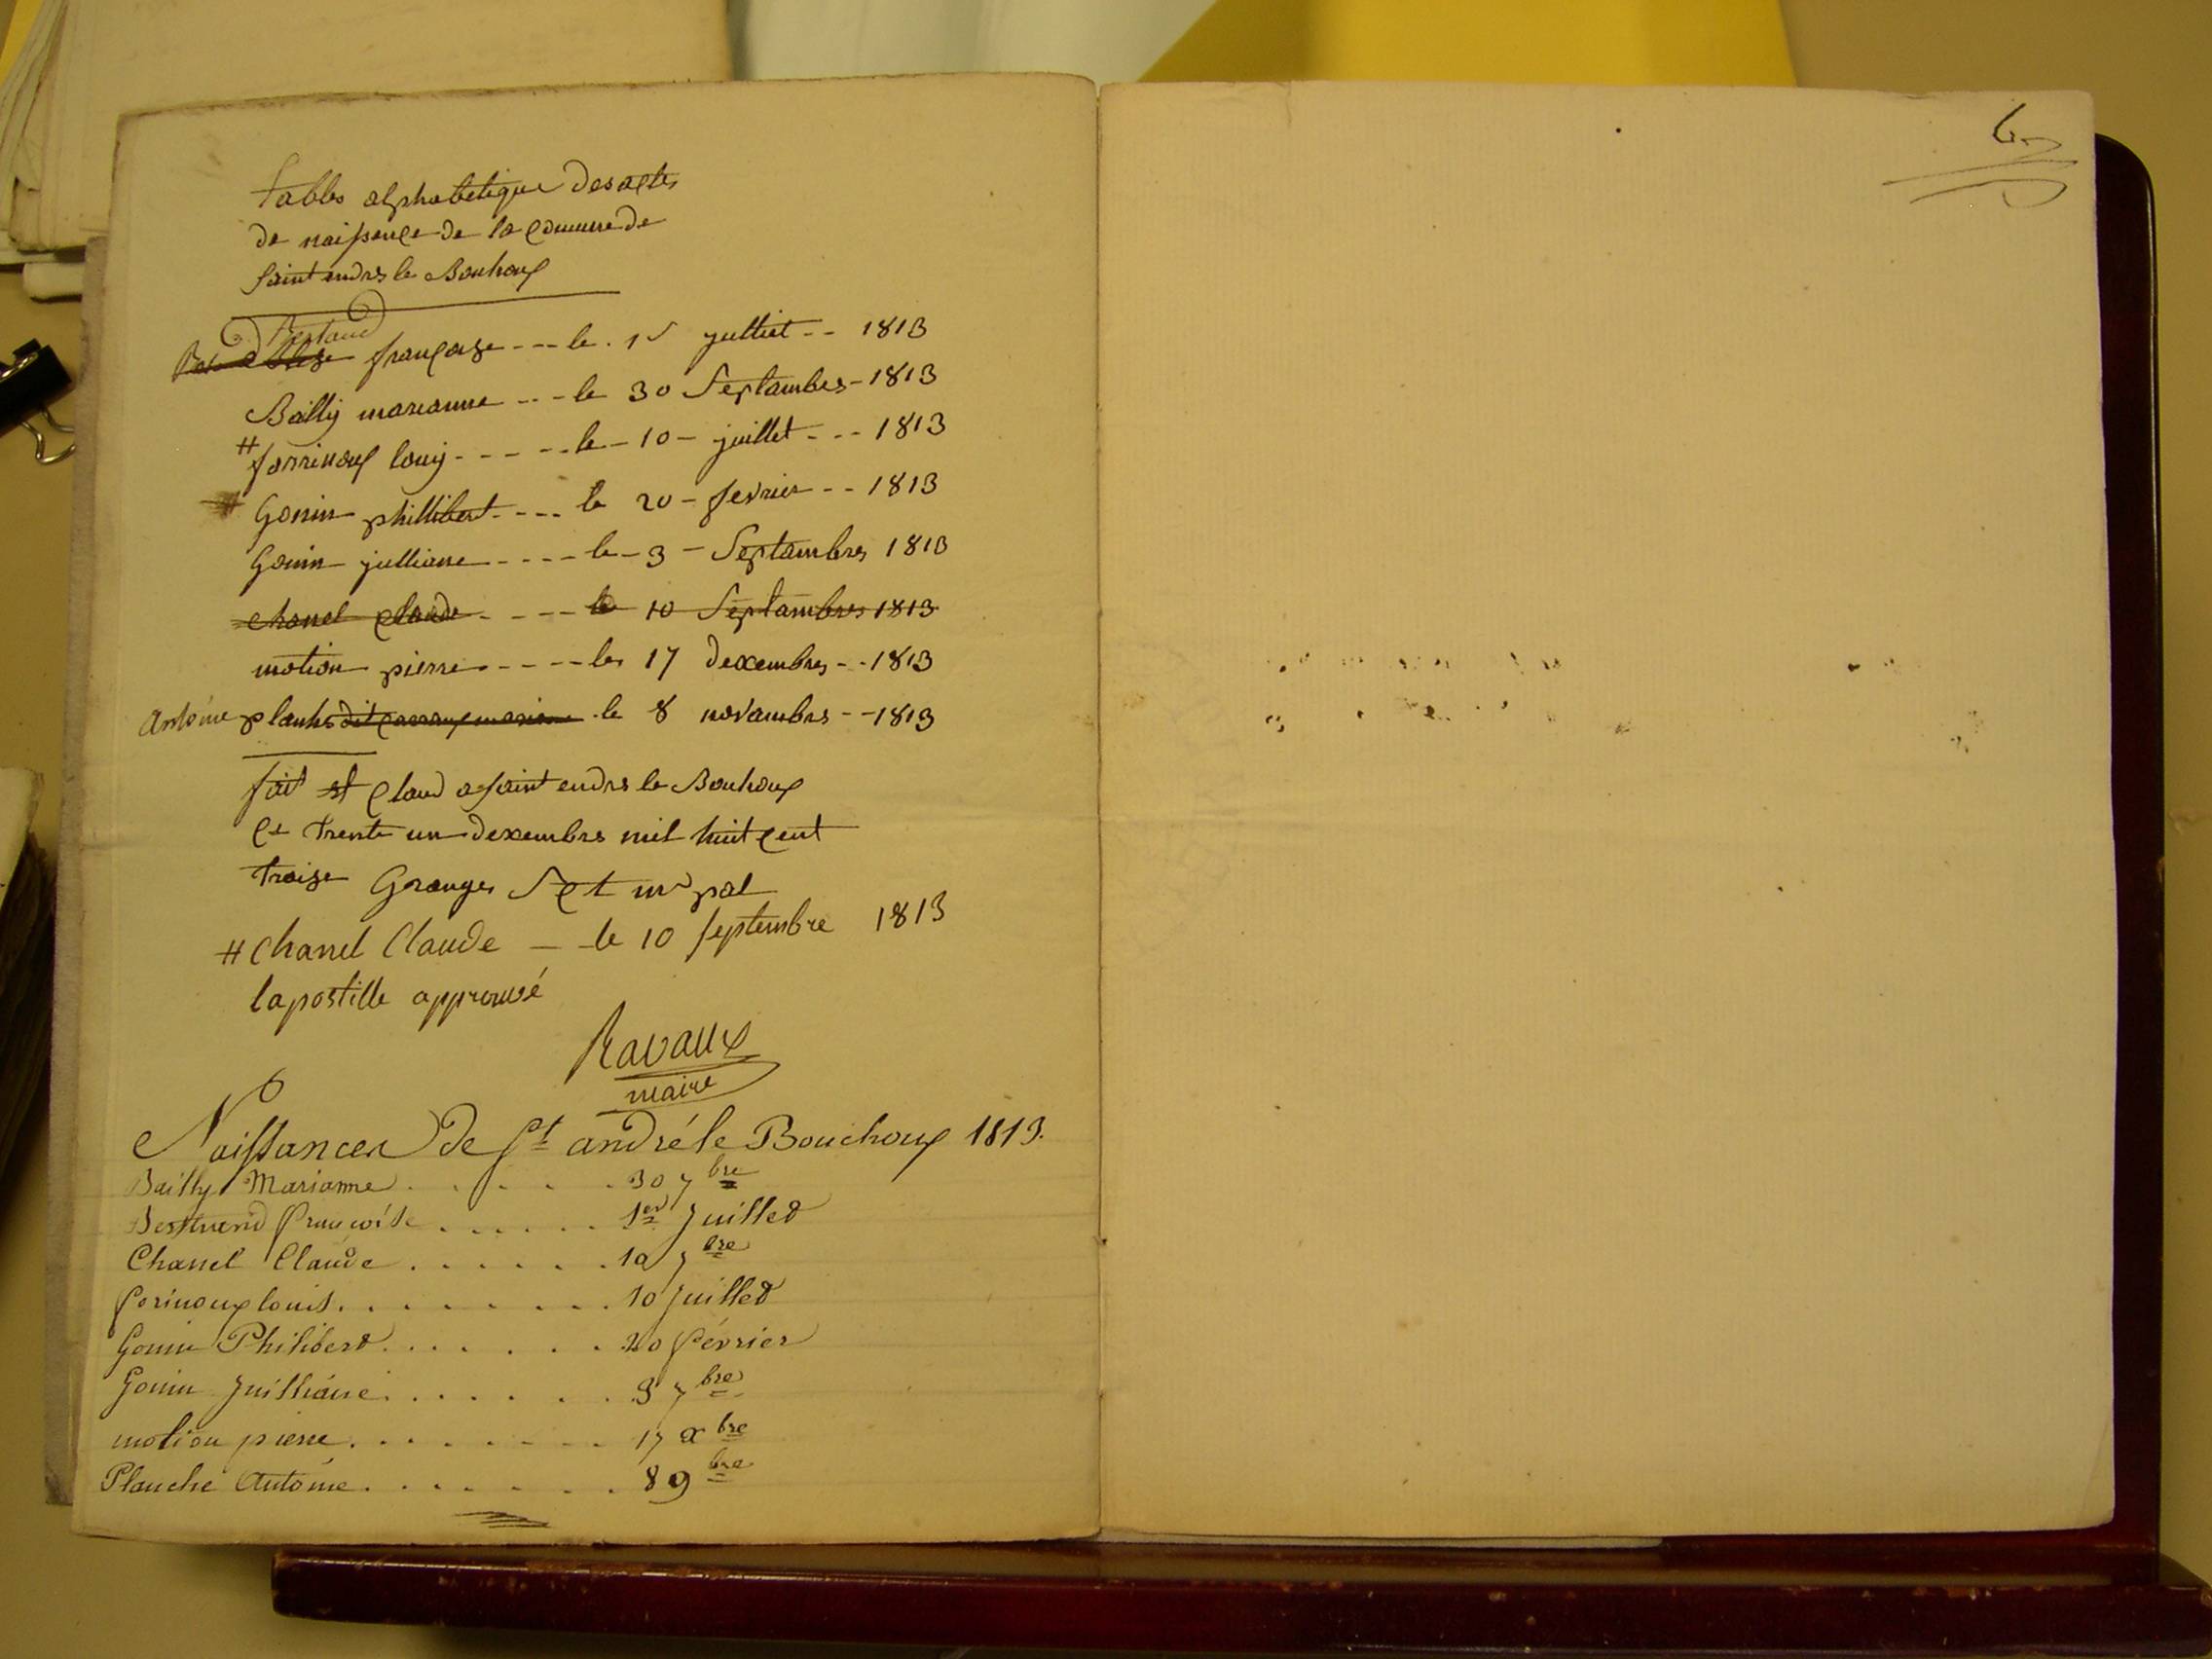 tables alphabetique des actes
de naissence de la Commune de
saint endré le Bouhoux
Bertand
françoise --- le . 1r julliet -- 1813
Bailly marianne --- le 30 Septambres - 1813
# forrinoux louij ----- le - 10 - juillet --- 1813
# Gonin phillibert ---- le 20 - fevrier -- 1813
Gonin julliane ---- le - 3 - Septambres 1813
chanel claude ---- le 10 Septambres 1813
motion pierre ----- les 17 dexembres -- 1813
Antoine planhe dit marianne le 8 novambres -- 1813
fait et claud a saint endré le Bouhoux
Ce trente un dexembres mil huit cent
traise Granges Sect mpal
# Chanel Claude — le 10 septembre 1813
lapostille approuvé
Ravaux
maire
Naissances de St andré le Bouchoux 1813.
Bailly Marianne . . . . . 30 7bre
Bertrand françoise . . . . . . 1er Juillet
Chanel Claude . . . . . . 10 7bre
forinoux louis . . . . . . . . 10 Juillet
Gonin Philibert . . . . . . . 20 février
Gonin Juilliane . . . . . . . 3 7bre
motion pierre . . . . . . . 17 xbre
Planche Antoine . . . . . . . 8 9bre